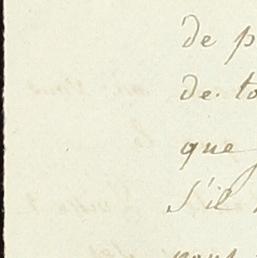 de p
de to
que
s'il